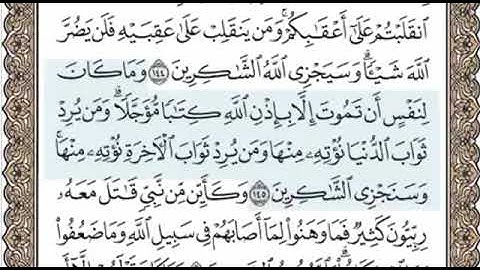 ٱنقَلَبۡتُمۡ عَلَىٰٓ أَعۡقَٰبِكُمۡۚ وَمَن يَنقَلِبۡ عَلَىٰ عَقِبَيۡهِ فَلَن يَضُرَّ
ٱللَّهَ شَيۡـٔٗاۗ وَسَيَجۡزِي ٱللَّهُ ٱلشَّٰكِرِينَ ١٤٤ وَمَا كَانَ
لِنَفۡسٍ أَن تَمُوتَ إِلَّا بِإِذۡنِ ٱللَّهِ كِتَٰبٗا مُّؤَجَّلٗاۗ وَمَن يُرِدۡ
ثَوَابَ ٱلدُّنۡيَا نُؤۡتِهِۦ مِنۡهَا وَمَن يُرِدۡ ثَوَابَ ٱلۡأٓخِرَةِ نُؤۡتِهِۦ مِنۡهَاۚ
وَسَنَجۡزِي ٱلشَّٰكِرِينَ ١٤٥ وَكَأَيِّن مِّن نَّبِيّٖ قَٰتَلَ مَعَهُۥ
رِبِّيُّونَ كَثِيرٞ فَمَا وَهَنُواْ لِمَآ أَصَابَهُمۡ فِي سَبِيلِ ٱللَّهِ وَمَا ضَعُفُواْ